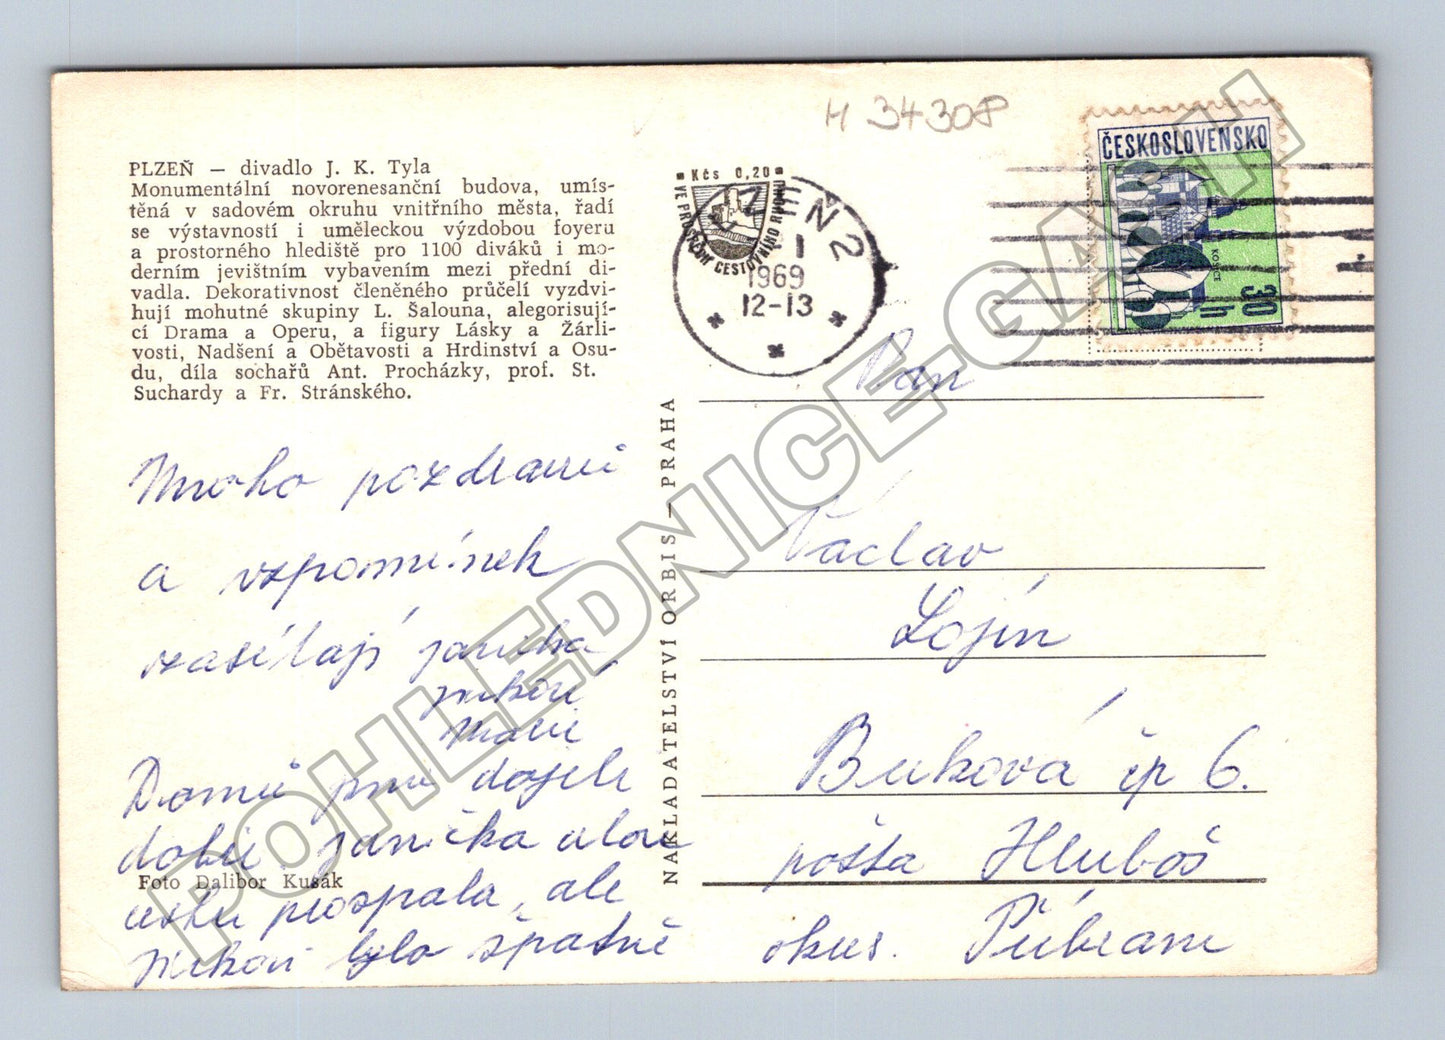 H 34308
PLZEŇ — divadlo J. K. Tyla
Monumentální novorenesanční budova, umís-
těná v sadovém okruhu vnitřního města, řadí
se výstavností i uměleckou výzdobou foyeru
a prostorného hlediště pro 1100 diváků i mo-
derním jevištním vybavením mezi přední di-
vadla. Dekorativnost členěného průčelí vyzdvi-
hují mohutné skupiny L. Šalouna, alegorisují-
cí Drama a Operu, a figury Lásky a Žárli-
vosti, Nadšení a Obětavosti a Hrdinství a Osu-
du, díla sochařů Ant. Procházky, prof. St.
Suchardy a Fr. Stránského.
Kčs 0,20
VE PROSPĚCH CESTOVNÍHO RUCHU
PLZEŇ 2
1969
12-13
ČESKOSLOVENSKO
KOŠICE
30 h
Mnoho pozdravů
a vzpomínek
zasílají Janička
Mirkoví
Marie
Domů jsme dojeli
dobře Janička
cestu prospala, ale
bylo špatně
Foto Dalibor Kusák
NAKLADATELSTVÍ ORBIS — PRAHA
Pan
Václav
Lojín
Buková čp 6.
pošta Hluboš
okres. Příbram
POHLEDNICE-GACH